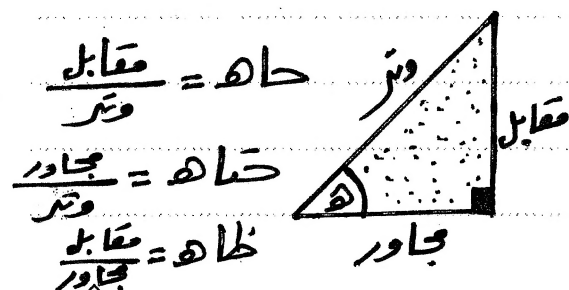 حاه = مقابل / وتر
حتاه = مجاور / وتر
ظاه = مقابل / مجاور
وتر
مقابل
ه
مجاور